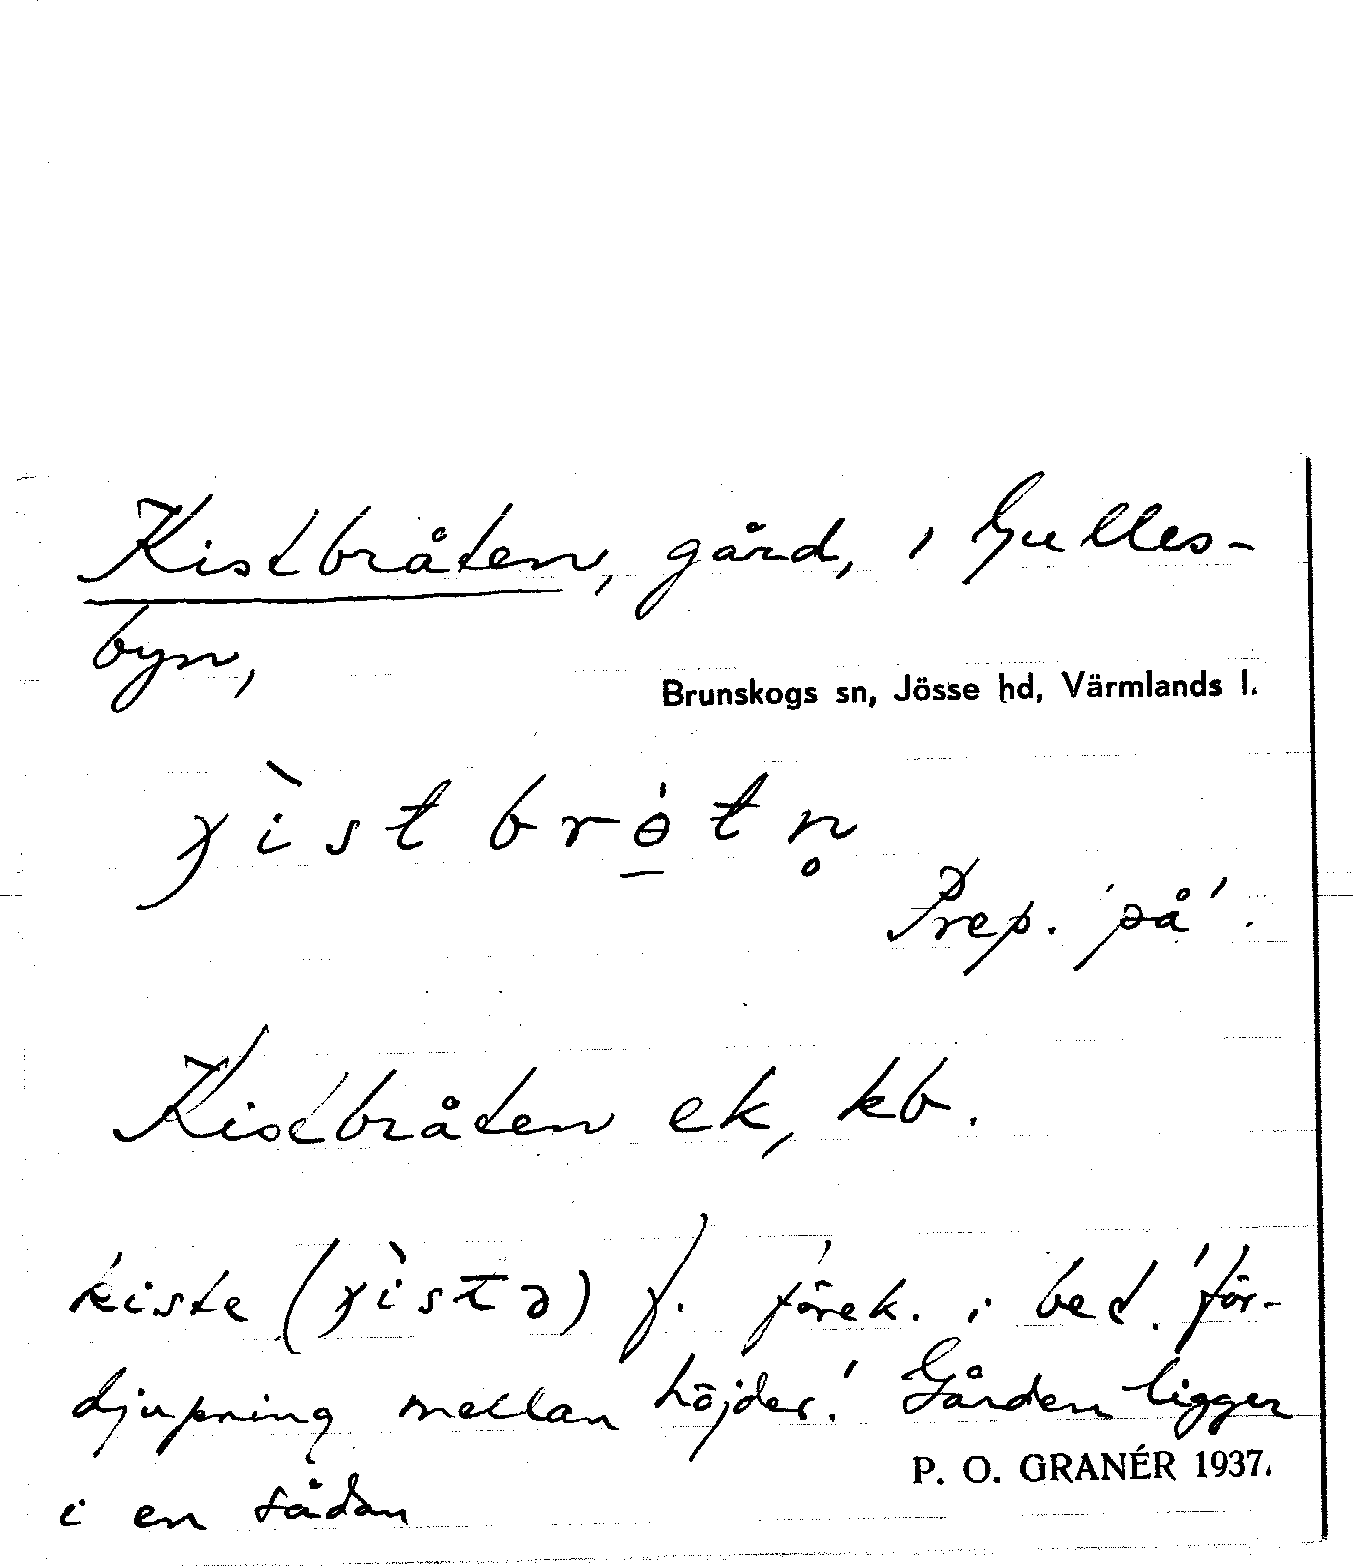 Kistbråten, gård, i Gulles-
byn,
Brunskogs sn, Jösse hd, Värmlands l.
Prep. 'på'.
Kistbråten ek, kb.
kiste (  ) f. förek. i bet. 'för-
djupning mellan höjder.' Gården ligger
P. O. GRANÉR 1937.
i en sådan